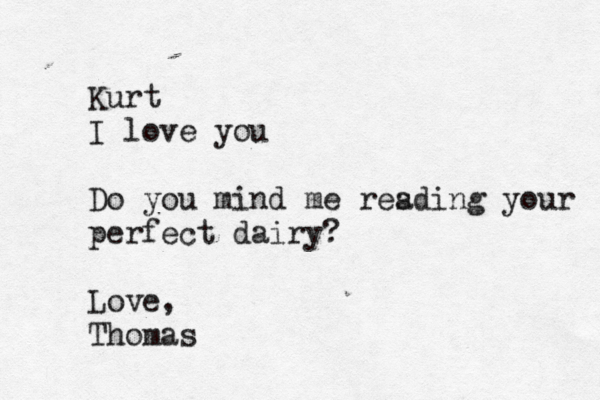 Kurt
I love you
Do you mind me reading your
perfect dairy?
Love,
Thomas